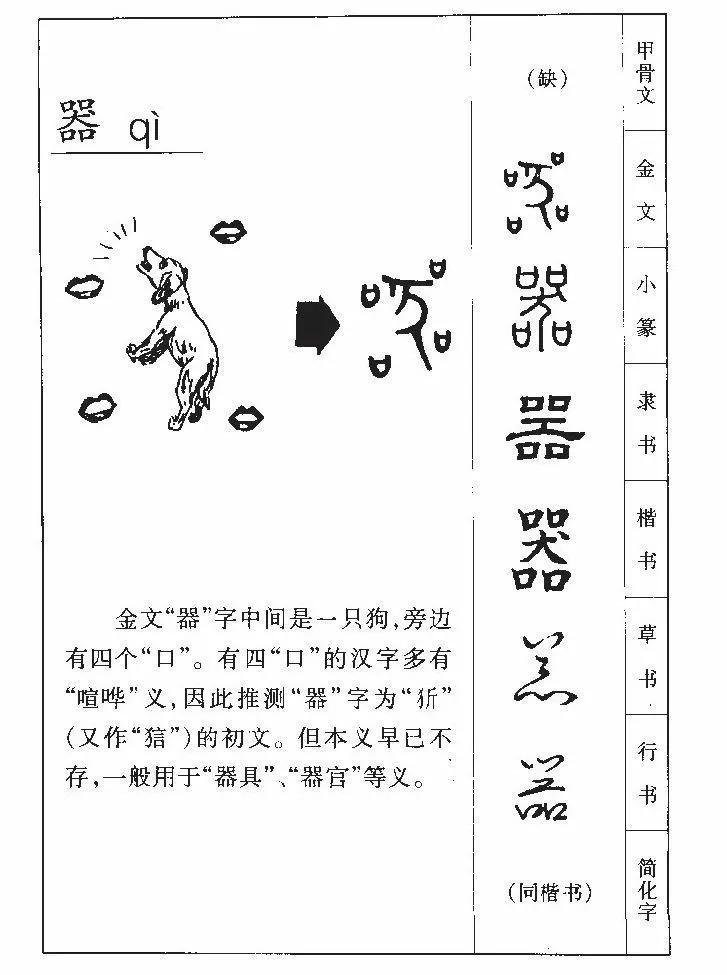 器 qì
金文“器”字中间是一只狗,旁边
有四个“口”。有四“口”的汉字多有
“喧哗”义,因此推测“器”字为“狾”
(又作“狺”)的初文。但本义早已不
存,一般用于“器具”、“器官”等义。
(缺)
甲骨文
器
金文
器
小篆
器
隶书
器
楷书
器
草书
器
行书
(同楷书)
简化字